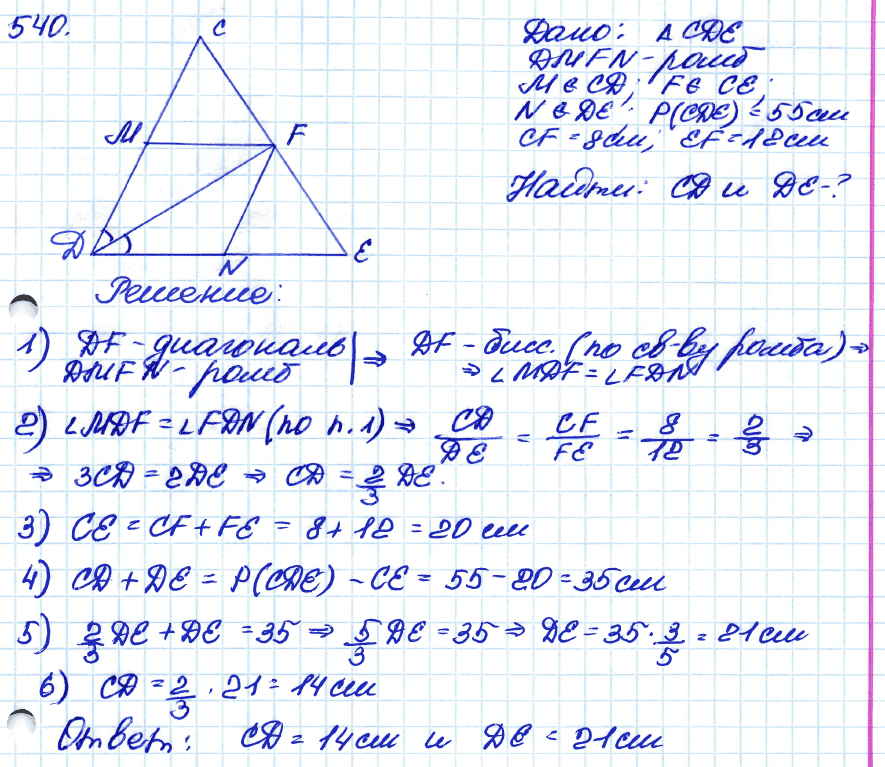 540.
C
M
F
D
N
E
Дано: Δ CDE
DMFN - ромб
M ∈ CD; F ∈ CE;
N ∈ DE; P(CDE) = 55см
CF = 8см; EF = 12см
Найти: CD и DE - ?
Решение:
1) DF - диагональ | ⇒ DF - бисс. (по св-ву ромба) ⇒
DMFN - ромб | ⇒ ∠MDF = ∠FDN
2) ∠MDF = ∠FDN (по п.1) ⇒ CD/DE = CF/FE = 8/12 = 2/3 ⇒
⇒ 3CD = 2DE ⇒ CD = 2/3 DE.
3) CE = CF + FE = 8 + 12 = 20 см
4) CD + DE = P(CDE) - CE = 55 - 20 = 35см
5) 2/3 DE + DE = 35 ⇒ 5/3 DE = 35 ⇒ DE = 35 · 3/5 = 21см
6) CD = 2/3 · 21 = 14см
Ответ: CD = 14см и DE = 21см